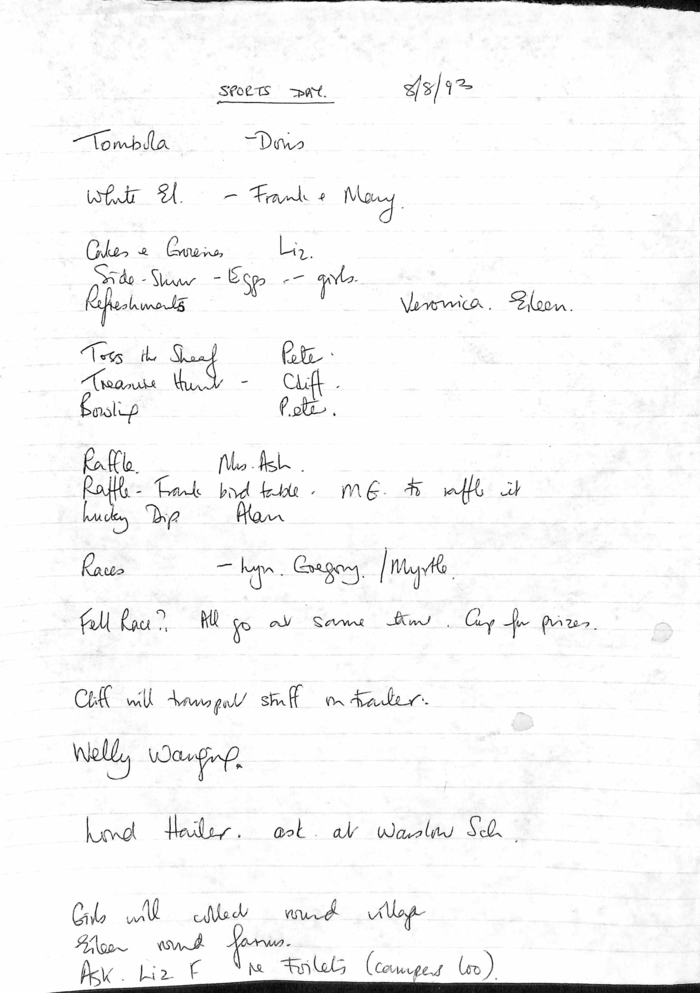 SPORTS DAY. 8/8/93
Tombola - Doris
White El. - Frank & Mary.
Cakes & Groceries Liz.
Side-Show - Eggs -- girls.
Refreshments Veronica. Eileen.
Toss the Sheaf Pete.
Treasure Hunt - Cliff.
Bowling Pete.
Raffle. Mrs. Ash.
Raffle - Frank bird table. ME. to raffle it
Lucky Dip Alan
Races - Lyn. Gregory. / Myrtle.
Fell Race?. All go at same time. Cup for prizes.
Cliff will transport stuff on trailer.
Welly Wanging.
Loud Hailer. ask at Warslow Sch.
Girls will collect round village
Eileen round farms.
Ask. Liz F re Toilets (campers loo).